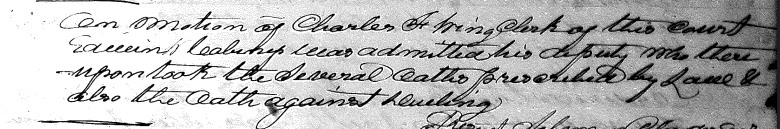 On motion of Charles F Wing Clerk of this Court
Edwin was admitted his deputy who there
upon took the several oaths prescribed by Law &
also the Oath against Dueling